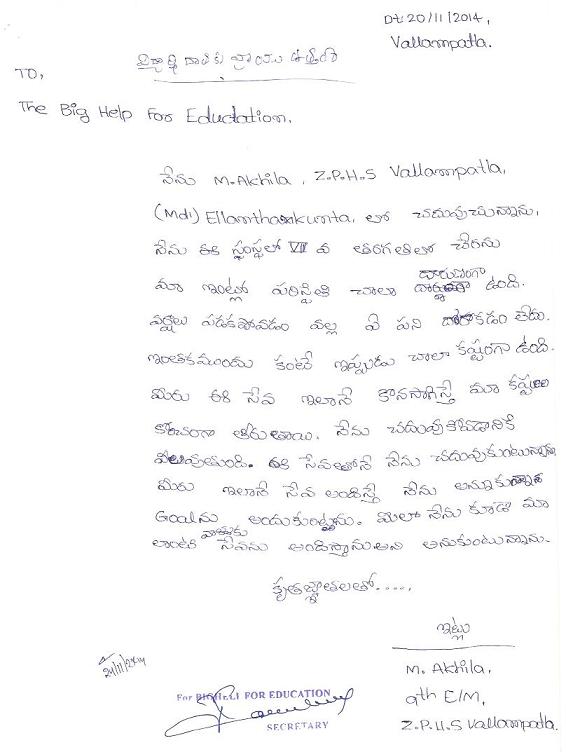 Dt: 20/11/2014,
Vallampatla.
విద్యార్థి రాయు
TO,
The Big Help For Eductation.
నేను M.Akhila, Z.P.H.S Vallampatla,
(Mdl) Ellanthakunta, లో చదువుచున్నాను.
నేను ఈ సంస్థలో VII వ తరగతిలో చేరాను
మా ఇంట్లో పరిస్థితి చాలా దారుణంగా ఉంది.
వర్షాలు పడకపోవడం వల్ల ఏ పని దొరకడం లేదు.
ఇంతకముందు కంటే ఇప్పుడు చాలా కష్టంగా ఉంది.
మీరు ఈ సేవ ఇలానే కొనసాగిస్తే మా కష్టాలు
కొంచంగా తీరుతాయి. నేను చదువుకోవడానికి
వీలవుతుంది. ఈ సేవతోనే నేను చదువుకుంటున్నాను
మీరు ఇలానే సేవ అందిస్తే నేను అనుకున్న
Goalను అందుకుంటాను. మీలా నేను కూడా మా
లాంటి వాళ్లకు సేవను అందిస్తాను అని అనుకుంటున్నాను.
కృతజ్ఞతలతో.....,
ఇట్లు
M. Akhila,
9th E/M,
Z.P.H.S Vallampatla.
24/11/2014
For BIGHELP FOR EDUCATION
SECRETARY